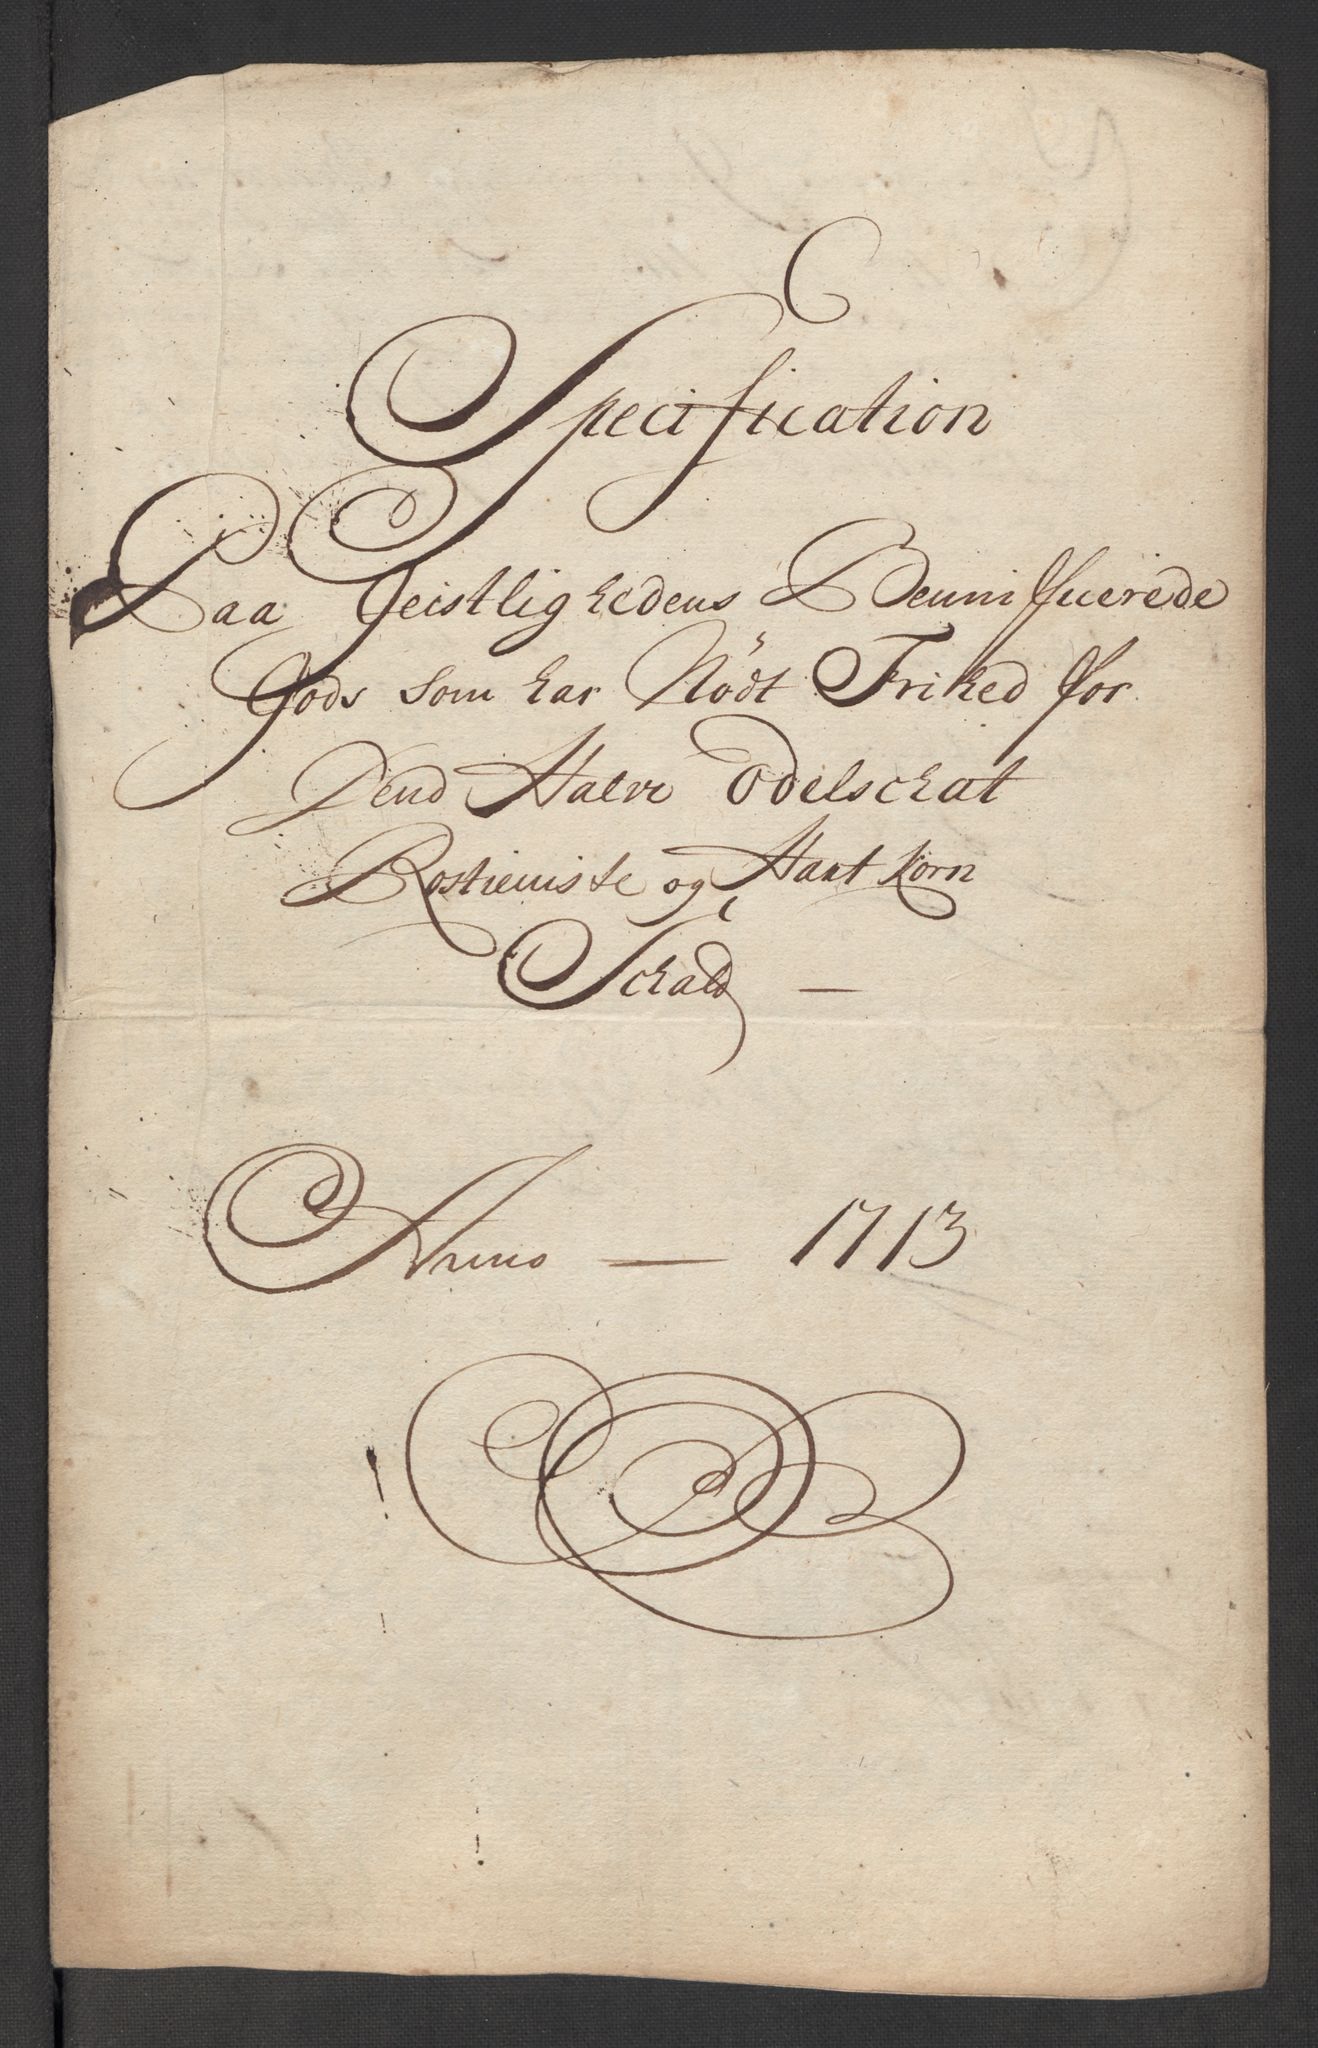 Specification
Paa Geistlighedens Benificerede
Gods som har Nödt Frihed for
Dend Halve Odelschat
Rostieniste og Hartkorn
Schatt —
Anno — 1713